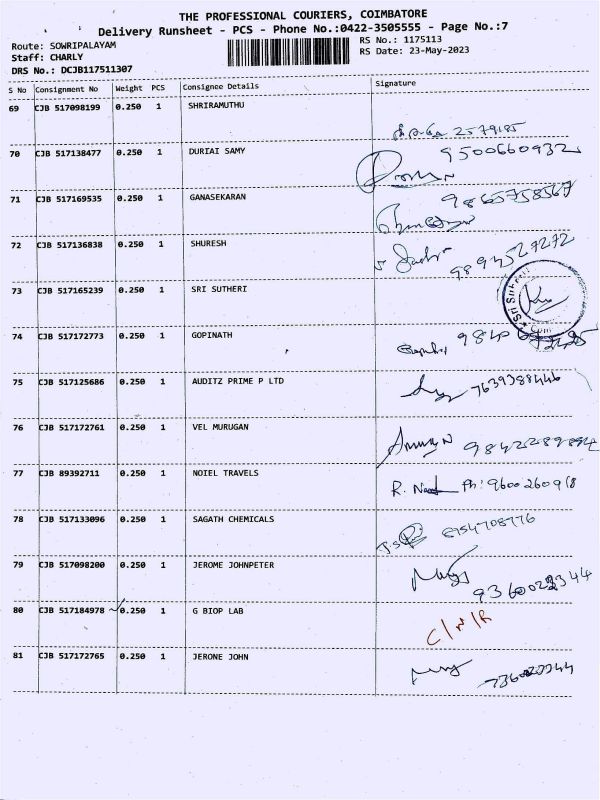 THE PROFESSIONAL COURIERS, COIMBATORE
Delivery Runsheet - PCS - Phone No.:0422-3505555 - Page No.:7
Route: SOWRIPALAYAM
RS No.: 1175113
Staff: CHARLY
RS Date: 23-May-2023
DRS No.: DCJB117511307
S No Consignment No Weight PCS Consignee Details Signature
69 CJB 517098199 0.250 1 SHRIRAMUTHU
2579185
70 CJB 517138477 0.250 1 DURIAI SAMY 9500660932
71 CJB 517169535 0.250 1 GANASEKARAN 9865758567
72 CJB 517136838 0.250 1 SHURESH 9894527272
73 CJB 517165239 0.250 1 SRI SUTHERI
74 CJB 517172773 0.250 1 GOPINATH
75 CJB 517125686 0.250 1 AUDITZ PRIME P LTD 7639388446
76 CJB 517172761 0.250 1 VEL MURUGAN
77 CJB 89392711 0.250 1 NOIEL TRAVELS R. Ph: 9600260918
78 CJB 517133096 0.250 1 SAGATH CHEMICALS
79 CJB 517098200 0.250 1 JEROME JOHNPETER
80 CJB 517184978 0.250 1 G BIOP LAB
81 CJB 517172765 0.250 1 JERONE JOHN